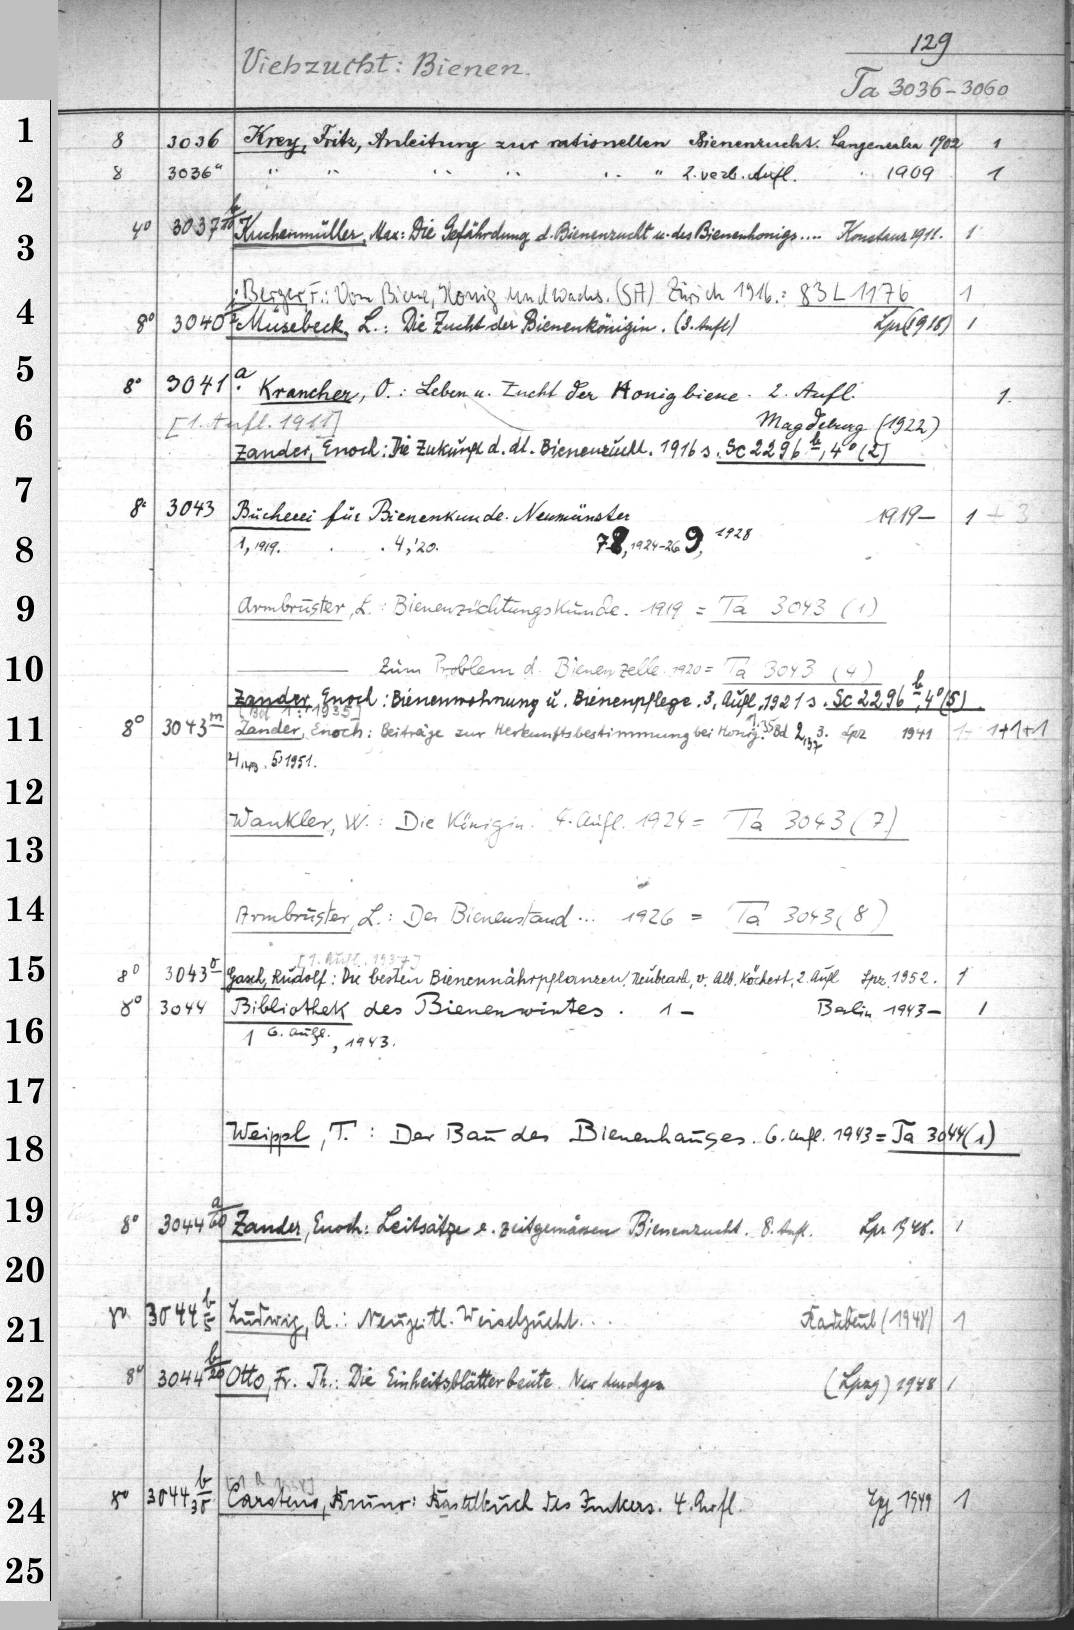 129
Viehzucht: Bienen.
Ta 3036-3060
1
8 3036 Krey, Fritz, Anleitung zur rationellen Bienenzucht. Langensalza 1902 1
2
8 3036a " " " " " " 2. verb. Aufl. " 1909 1
3
4° 3037 b/10 Kuchenmüller, Max: Die Gefährdung d. Bienenzucht u. des Bienenhonigs.... Konstanz 1911. 1
Berger, F.: Von Biene, Honig und Wachs. (SA) Zürich 1916. = 83 L 1176 1
4
8° 3040 Müsebeck, L.: Die Zucht der Bienenkönigin. (3. Aufl) Lpz (1918) 1
5
8° 3041 a Krancher, O.: Leben u. Zucht der Honigbiene. 2. Aufl. 1.
6
[1. Aufl. 1911] Magdeburg (1922)
Zander, Enoch: Die Zukunft d. dt. Bienenzucht. 1916 s. Sc 2296 b, 4° (2)
7
8° 3043 Bücherei für Bienenkunde. Neumünster 1919- 1 + 3
8
1, 1919. . . 4, '20. 7-8, 1924-26 9, 1928
9
Armbruster, L.: Bienenzüchtungskunde. 1919 = Ta 3043 (1)
10
——— Zum Problem d. Bienenzelle. 1920 = Ta 3043 (4)
Zander, Enoch: Bienenwohnung u. Bienenpflege. 3. Aufl, 1921 s. Sc 2296 b, 4° (5)
11
[Bd 1: 1935]
8° 3043 m Zander, Enoch: Beiträge zur Herkunftsbestimmung bei Honig. 1,'35 Bd 2,'37 3. Lpz 1941 1+1+1+1
4,'49. 5,1951.
12
Wankler, W.: Die Königin. 4. Aufl. 1924 = Ta 3043 (7)
13
14
Armbruster, L.: Der Bienenstand... 1926 = Ta 3043 (8)
[1. Aufl. 1937]
15
8° 3043 o Gasch, Rudolf: Die besten Bienennährpflanzen. Neubearb. v. Alb. Köchert, 2. Aufl Lpz. 1952. 1
8° 3044 Bibliothek des Bienenwirtes. 1 - Berlin 1943- 1
16
1 6. Aufl., 1943.
17
18
Weippl, T.: Der Bau des Bienenhauses. 6. Aufl. 1943 = Ta 3044 (1)
19
8° 3044 a/60 Zander, Enoch: Leitsätze e. zeitgemässen Bienenzucht. 8. Aufl. Lpz 1948. 1
20
21
8° 3044 b/5 Ludwig, A.: Neuzeitl. Weiselzucht... Radebeul (1948) 1
22
8° 3044 b/20 Otto, Fr. Th.: Die Einheitsblätterbeute. Neu durchges. (Lpzg) 1948 1
23
24
8° 3044 b/35 Carstens, Bruno: Bastelbuch des Imkers. 4. Aufl. Lpz 1949 1
25